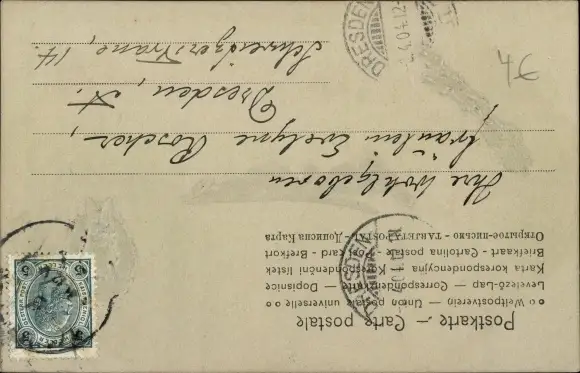 Postkarte — Carte postale
Weltpostverein — Union postale universelle
Levelező-Lap — Correspondenzkarte — Dopisnice
Karta korespondencyjna — Korespondenční lístek
Briefkaart - Cartolina postale - Post card - Brefkort
Открытое письмо - TARJETA POSTAL - Дописна Карта
Ihre Wohlgeboren
Fräulein Evelyne Roscher,
Dresden, A.
Schweizerstrasse, 14.
DRESDEN
DRESDEN
4€
5 5